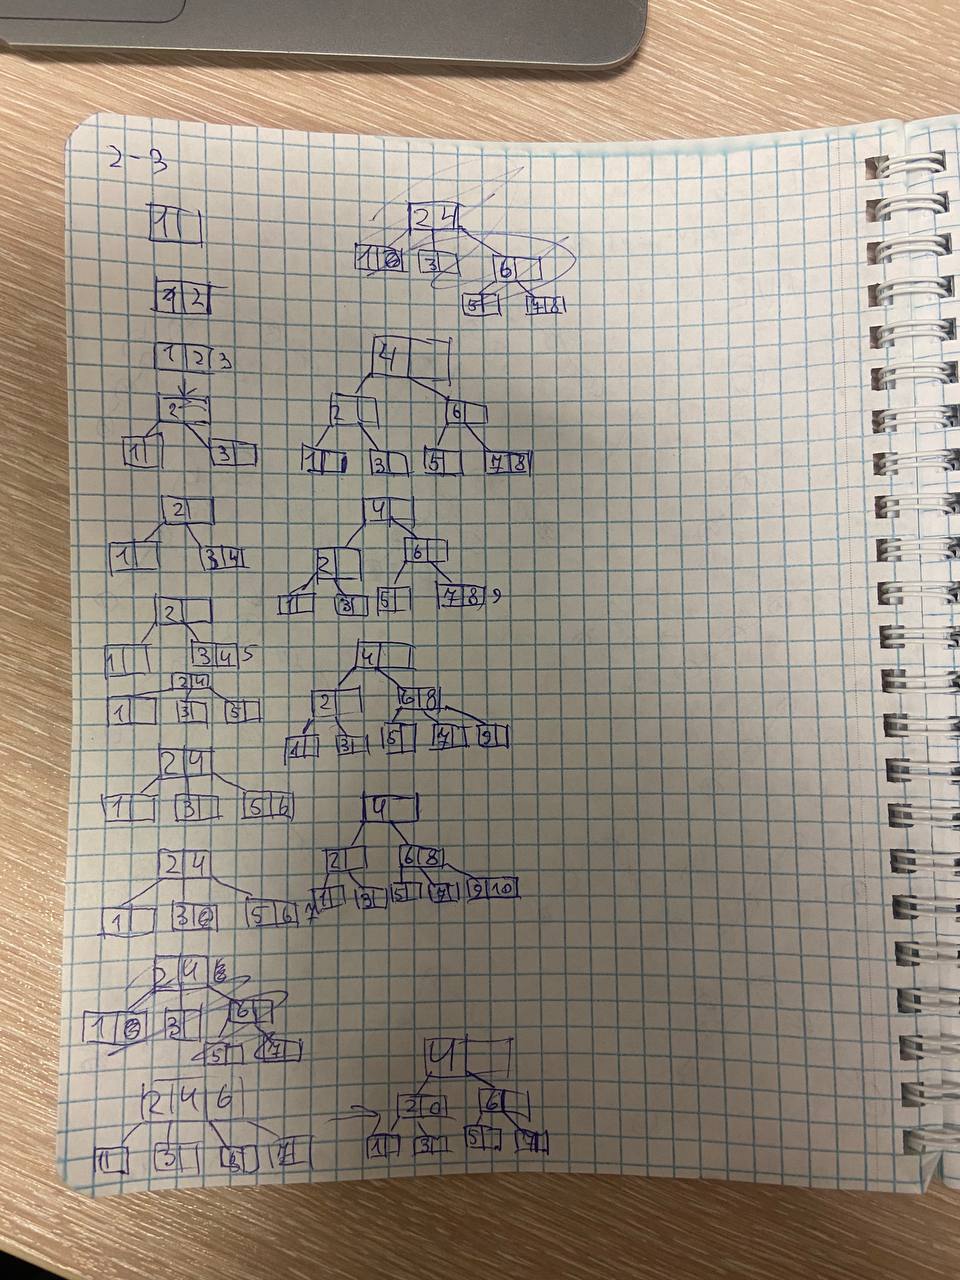 2-3
1
1 2
1 2 3
2
1 3
2
1 3 4
2
1 3 4 5
2 4
1 3 5
2 4
1 3 5 6
2 4
1 3 0 5 6 7
2 4
1 3
6
5 7
2 4 6
1 3 5 7
2 4
1 3
6
5 7 8
4
2 6
1 3 5 7 8
4
2 6
1 3 5 7 8 9
4
2 6 8
1 3 5 7 9
4
2 6 8
1 3 5 7 9 10
4
2 0 6
1 3 5 7